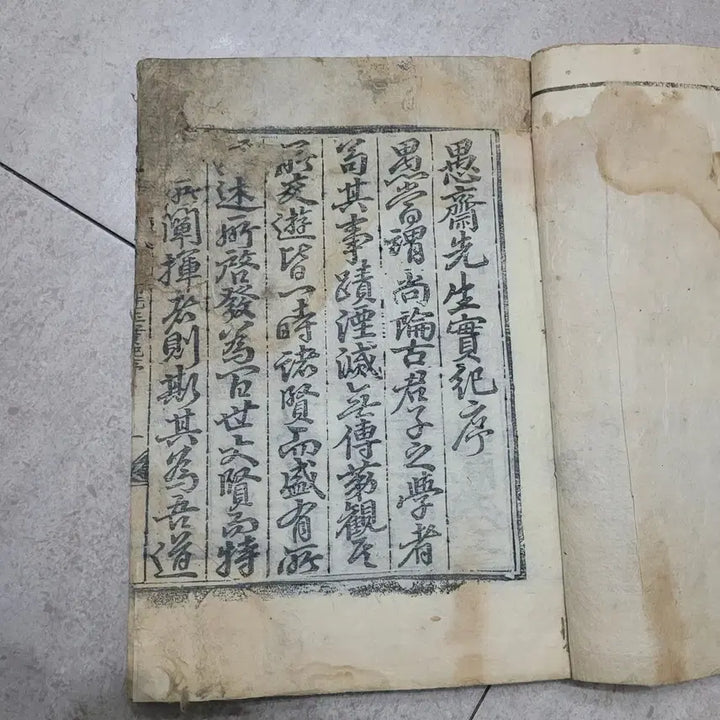 愚齋先生實紀序
愚嘗謂尚論古君子之學者
苟其事蹟湮滅無傳第觀其
所交遊皆一時諸賢而盛有所
述所啓發為百世大賢而特
所闡揮者則斯其為吾道